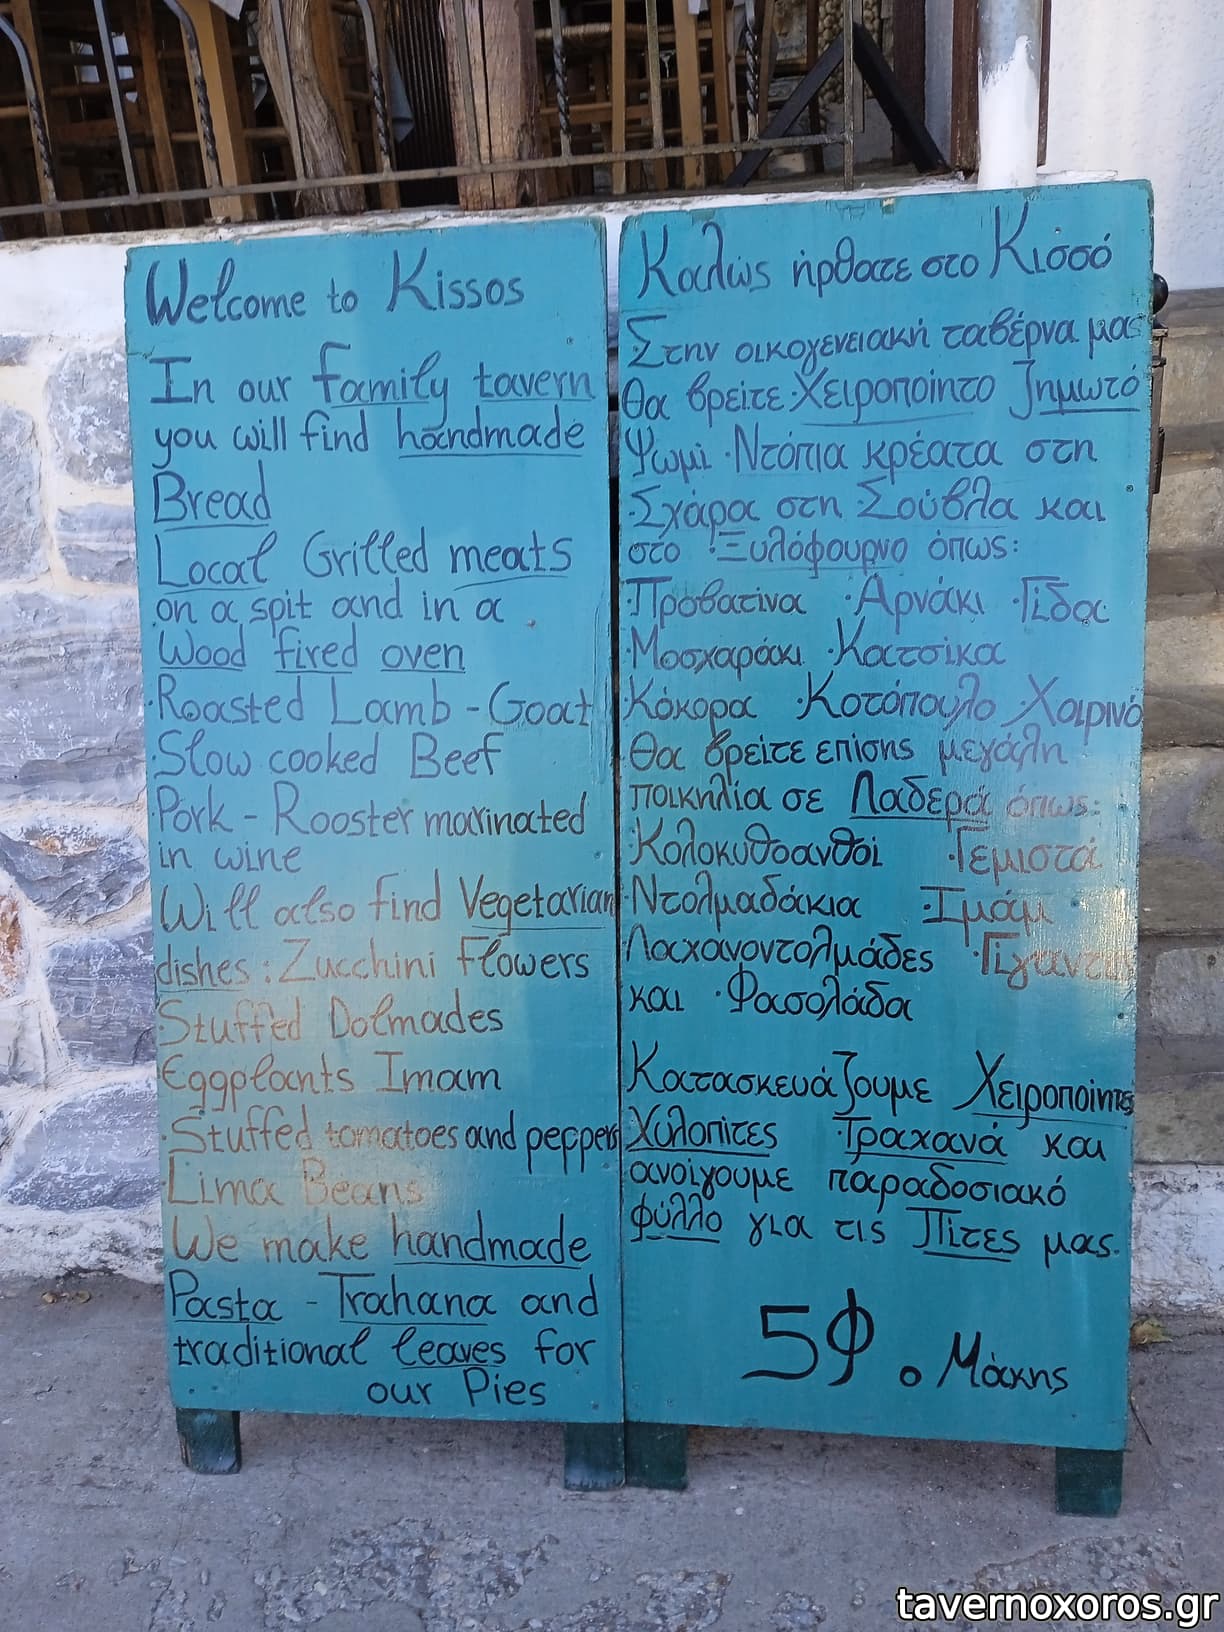 Welcome to Kissos
In our family tavern
you will find handmade
Bread
Local Grilled meats
on a spit and in a
Wood fired oven
·Roasted Lamb - Goat
·Slow cooked Beef
·Pork - Rooster marinated
in wine
Will also find Vegetarian
dishes: Zucchini Flowers
·Stuffed Dolmades
·Eggplants Imam
·Stuffed tomatoes and peppers
·Lima Beans
We make handmade
Pasta - Trahana and
traditional leaves for
our Pies
Καλώς ήρθατε στο Κισσό
Στην οικογενειακή ταβέρνα μας
θα βρείτε ·Χειροποίητο Ζημωτό
Ψωμί ·Ντόπια κρέατα στη
·Σχάρα στη Σούβλα και
στο ·Ξυλόφουρνο όπως:
·Προβατίνα ·Αρνάκι ·Γίδα
·Μοσχαράκι ·Κατσίκα
·Κόκορα ·Κοτόπουλο Χοιρινό
θα βρείτε επίσης μεγάλη
ποικηλία σε Λαδερά όπως:
·Κολοκυθοανθοί ·Γεμιστά
·Ντολμαδάκια ·Ιμάμ
·Λαχανοντολμάδες ·Γίγαντες
και ·Φασολάδα
Κατασκευάζουμε Χειροποίητες
Χυλοπίτες ·Τραχανά και
ανοίγουμε παραδοσιακό
φύλλο για τις Πίτες μας.
5Φ ο Μάκης
tavernoxoros.gr